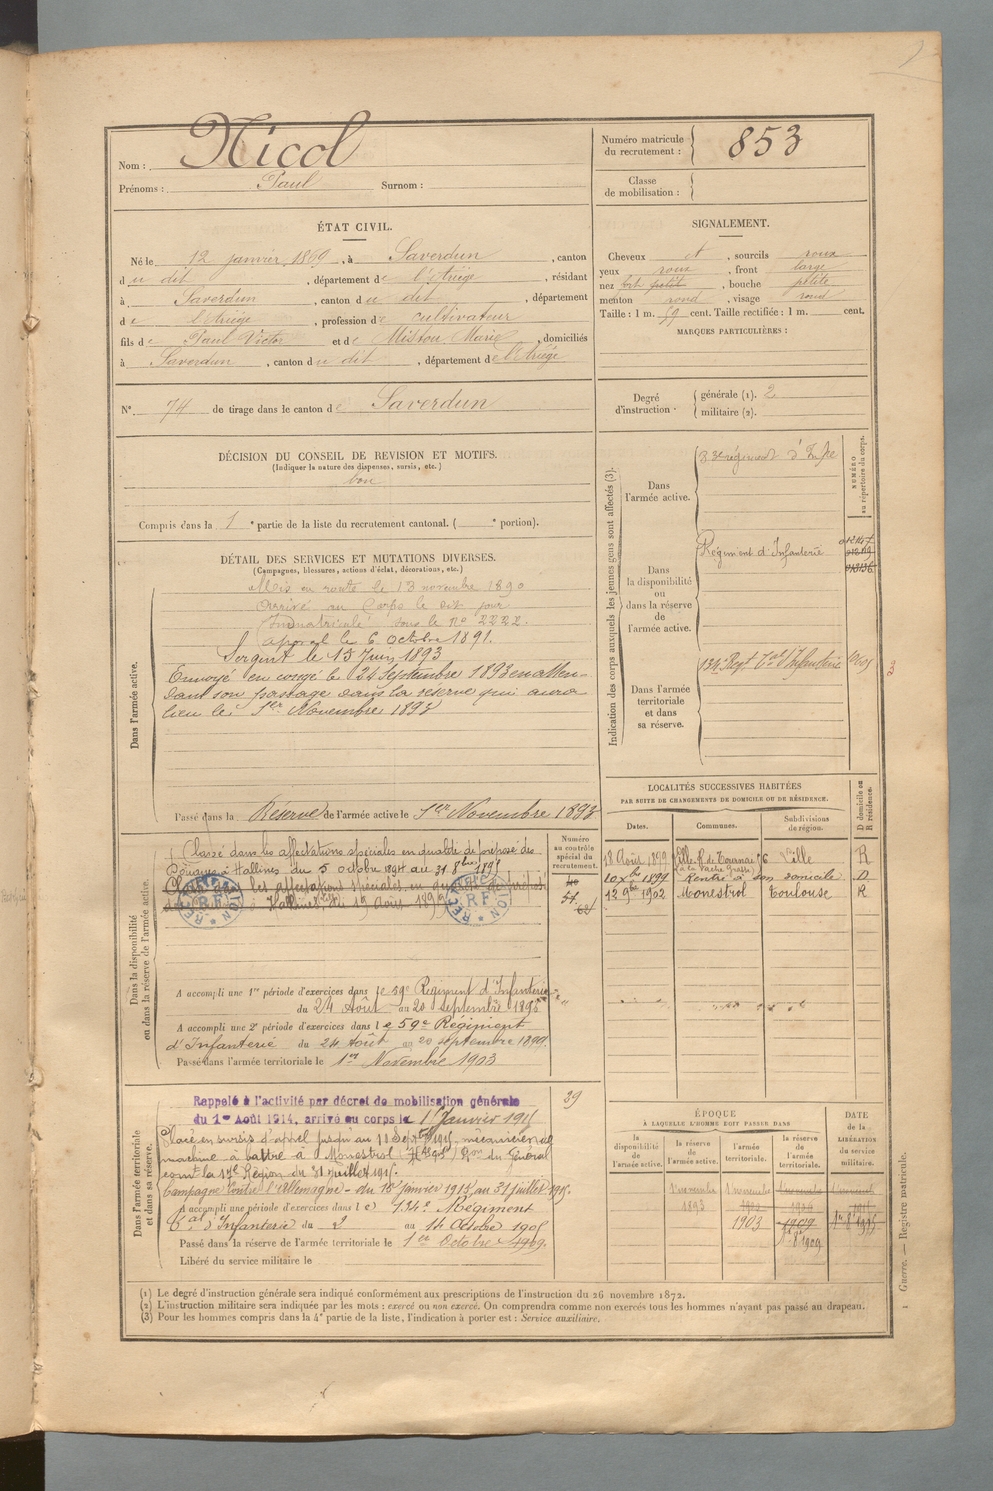 Nom : Nicol
Prénoms : Paul Surnom :
Numéro matricule du recrutement : 853
Classe de mobilisation :
ÉTAT CIVIL.
Né le 12 janvier 1869, à Saverdun, canton
du dit, département de l'Ariège, résidant
à Saverdun, canton du dit, département
de l'Ariège, profession de cultivateur
fils de Paul Victor et de Mistou Marie, domiciliés
à Saverdun, canton du dit, département de l'Ariège
N° 74 de tirage dans le canton de Saverdun
SIGNALEMENT.
Cheveux et, sourcils roux
yeux roux, front large
nez petit, bouche petite
menton rond, visage rond
Taille : 1 m. 59 cent. Taille rectifiée : 1 m. cent.
MARQUES PARTICULIÈRES :
Degré d'instruction : générale (1). 2
militaire (2).
DÉCISION DU CONSEIL DE REVISION ET MOTIFS.
(Indiquer la nature des dispenses, sursis, etc.)
bon
Compris dans la 1e partie de la liste du recrutement cantonal. ( e portion).
DÉTAIL DES SERVICES ET MUTATIONS DIVERSES.
(Campagnes, blessures, actions d'éclat, décorations, etc.)
Dans l'armée active.
Mis en route le 13 novembre 1890
Arrivé au Corps le dit jour
Immatriculé sous le N° 2222.
Caporal le 6 Octobre 1891.
Sergent le 15 Juin 1893
Envoyé en congé le 24 Septembre 1893 en atten-
dant son passage dans la réserve qui aura
lieu le 1er Novembre 1893
Passé dans la Réserve de l'armée active le 1er Novembre 1893
Indication des corps auxquels les jeunes gens sont affectés (3).
NUMÉRO au répertoire du corps.
Dans l'armée active.
régiment d'Infie
Dans la disponibilité ou dans la réserve de l'armée active.
Régiment d'Infanterie
Dans l'armée territoriale et dans sa réserve.
134e Régt Tal d'Infanterie
LOCALITÉS SUCCESSIVES HABITÉES
PAR SUITE DE CHANGEMENTS DE DOMICILE OU DE RÉSIDENCE.
D domicile ou R résidence.
Dates. Communes. Subdivisions de région.
18 Août 1899 Lille R. de Tournai 76 Lille R
(à la Vache Grasse)
10 Xbre 1899 Rentré à son domicile D
12 9bre 1902 Monestrol Toulouse R
Dans la disponibilité ou dans la réserve de l'armée active.
Numéro au contrôle spécial du recrutement.
Classé dans les affectations spéciales en qualité de préposé des
Douanes à Hallines du 5 octobre 1894 au 31 8bre 1898
RECRUTEMENT R.F.
A accompli une 1re période d'exercices dans le 59e Régiment d'Infanterie
du 24 Août au 20 septembre 1895
A accompli une 2e période d'exercices dans le 59e Régiment
d'Infanterie du 24 Août au 20 septembre 1899.
Passé dans l'armée territoriale le 1er Novembre 1903
Dans l'armée territoriale et dans sa réserve.
39
Rappelé à l'activité par décret de mobilisation générale
du 1er Août 1914, arrivé au corps le Janvier 1915
Placé en sursis d'appel jusqu'au Septbre 1915, mécanicien de
machine à battre à Monestrol (Hte Gne) Don du Général
comt la 17e Région du 31 juillet 1915.
Campagne contre l'Allemagne - du 18 janvier 1915 au 31 juillet 1915.
A accompli une période d'exercices dans le 134e Régiment
Tal d'Infanterie du 2 au 14 Octobre 1905
Passé dans la réserve de l'armée territoriale le 1er Octobre 1909.
Libéré du service militaire le
ÉPOQUE
À LAQUELLE L'HOMME DOIT PASSER DANS
la disponibilité de l'armée active.
la réserve de l'armée active.
l'armée territoriale.
la réserve de l'armée territoriale.
DATE de la LIBÉRATION du service militaire.
1 novembre 1893
1 novembre 1903
1r 8bre 1909
(1) Le degré d'instruction générale sera indiqué conformément aux prescriptions de l'instruction du 26 novembre 1872.
(2) L'instruction militaire sera indiquée par les mots : exercé ou non exercé. On comprendra comme non exercés tous les hommes n'ayant pas passé au drapeau.
(3) Pour les hommes compris dans la 4e partie de la liste, l'indication à porter est : Service auxiliaire.
1 Guerre. — Registre matricule.